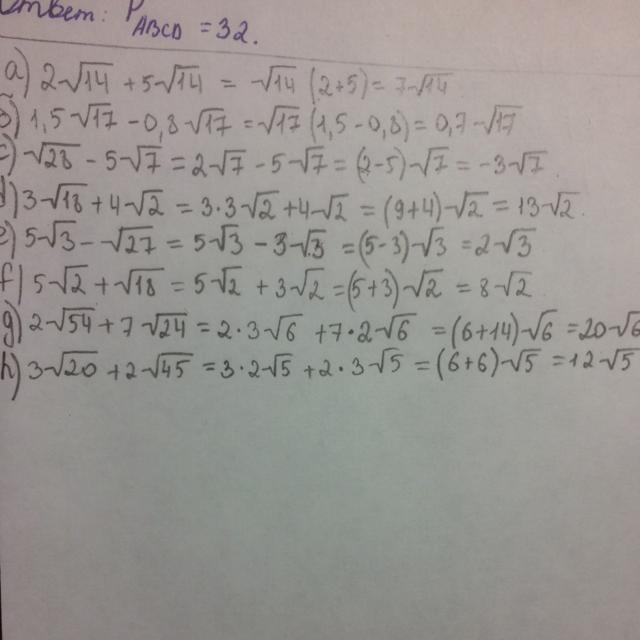 Ответ: P ABCD = 32.
a) 2√14 + 5√14 = √14 (2+5) = 7√14
б) 1,5√17 - 0,8√17 = √17 (1,5 - 0,8) = 0,7√17
c) √28 - 5√7 = 2√7 - 5√7 = (2-5)√7 = -3√7
d) 3√18 + 4√2 = 3·3√2 + 4√2 = (9+4)√2 = 13√2.
e) 5√3 - √27 = 5√3 - 3√3 = (5-3)√3 = 2√3
f) 5√2 + √18 = 5√2 + 3√2 = (5+3)√2 = 8√2
g) 2√54 + 7√24 = 2·3√6 + 7·2√6 = (6+14)√6 = 20√6
h) 3√20 + 2√45 = 3·2√5 + 2·3√5 = (6+6)√5 = 12√5